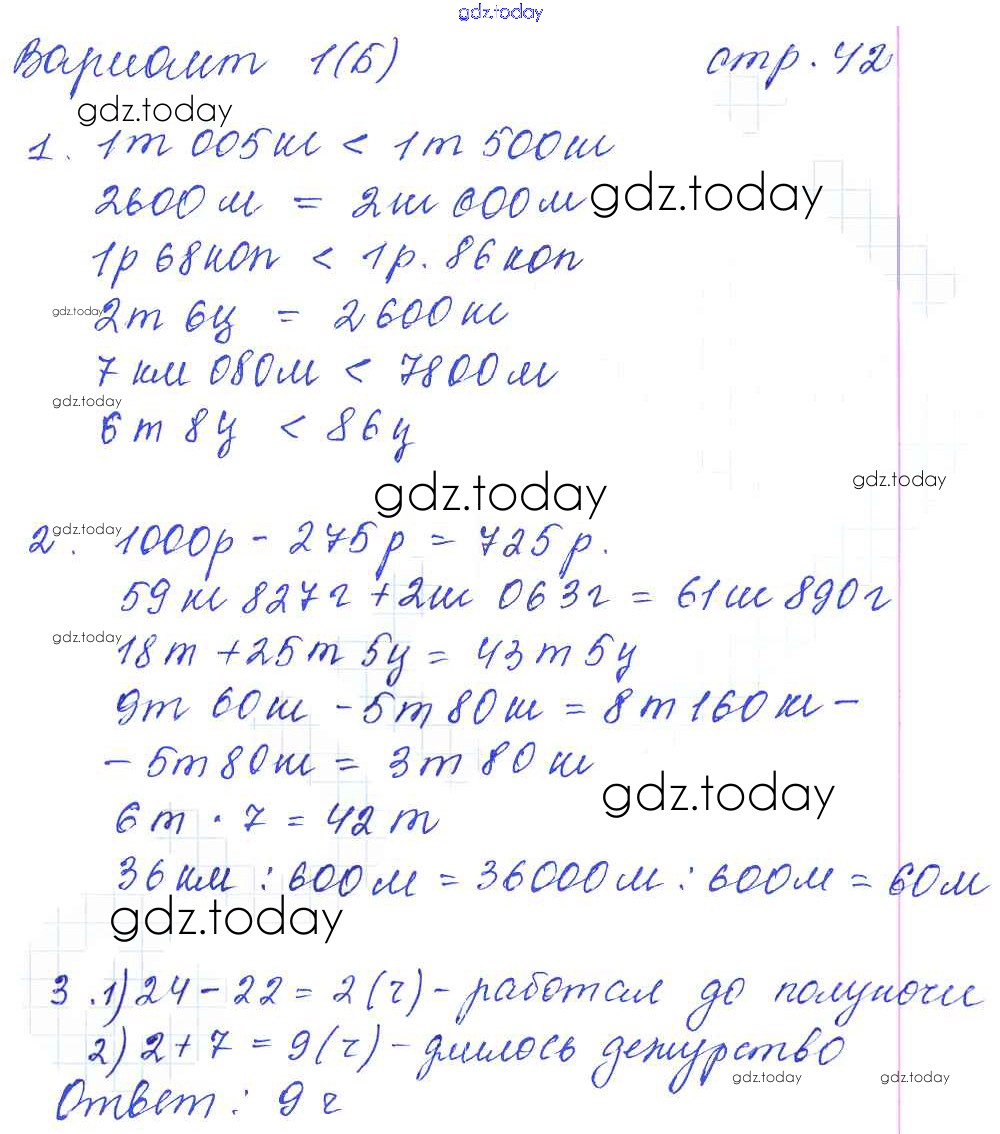 gdz.today
Вариант 1(Б) стр. 42
gdz.today
1. 1т 005кг < 1т 500кг
2600м = 2км 600м gdz.today
1р 68коп < 1р. 86коп
gdz.today 2т 6ц = 2600кг
7км 080м < 7800м
gdz.today
6т 8ц < 86ц
gdz.today gdz.today
gdz.today
2. 1000р - 275р = 725р.
59кг 827г + 2кг 063г = 61кг 890г
gdz.today
18т + 25т 5ц = 43т 5ц
9т 60кг - 5т 80кг = 8т 160кг -
- 5т 80кг = 3т 80кг
gdz.today
6т · 7 = 42т
36км : 600м = 36000м : 600м = 60м
gdz.today
3. 1) 24 - 22 = 2(ч) - работал до полуночи
2) 2 + 7 = 9(ч) - длилось дежурство
gdz.today gdz.today
Ответ: 9ч